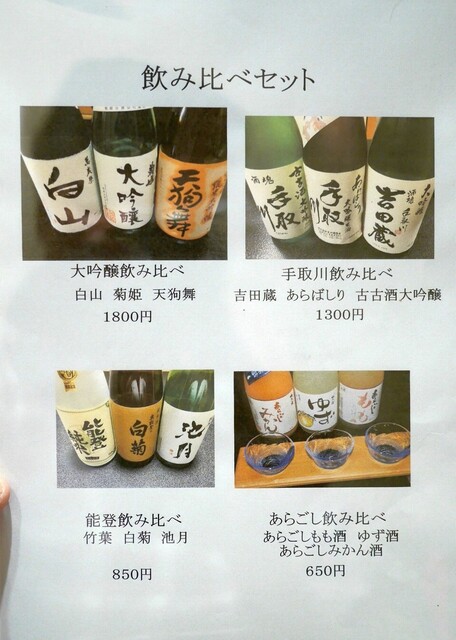 飲み比べセット
白山
大吟醸
天狗舞
手取川
あらばしり
手取川
吉田蔵
大吟醸飲み比べ
白山 菊姫 天狗舞
1800円
手取川飲み比べ
吉田蔵 あらばしり 古古酒大吟醸
1300円
能登
白菊
池月
みかん
ゆず
もも
能登飲み比べ
竹葉 白菊 池月
850円
あらごし飲み比べ
あらごしもも酒 ゆず酒
あらごしみかん酒
650円